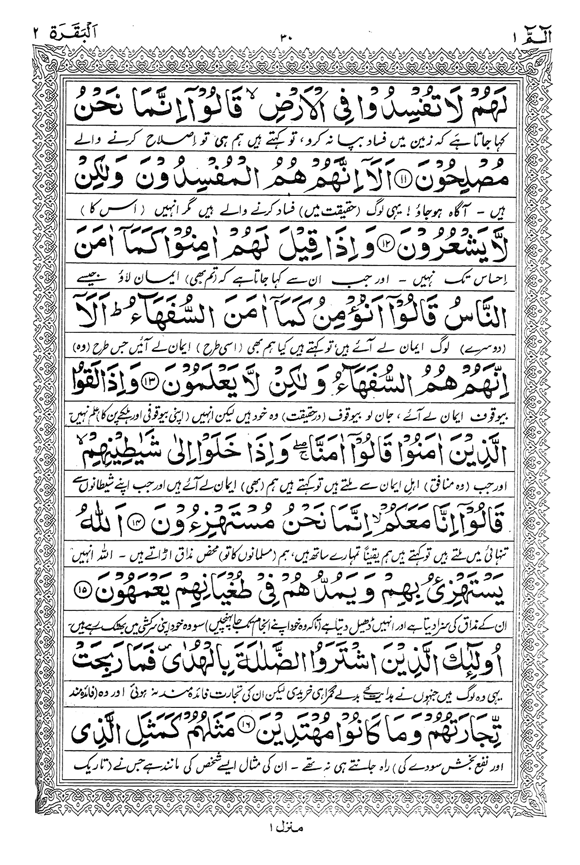 الٓمّٓ ١
٣٠
اَلْبَقَرَة ٢
لَهُمْ لَا تُفْسِدُوْا فِی الْاَرْضِ ۙ قَالُوْۤا اِنَّمَا نَحْنُ
کہا جاتا ہے کہ زمین میں فساد بپا نہ کرو، تو کہتے ہیں ہم ہی تو اصلاح کرنے والے
مُصْلِحُوْنَ ﴿۱۱﴾ اَلَاۤ اِنَّهُمْ هُمُ الْمُفْسِدُوْنَ وَلٰكِنْ
ہیں - آگاہ ہوجاؤ! یہی لوگ (حقیقت میں) فساد کرنے والے ہیں مگر انہیں (اس کا)
لَّا يَشْعُرُوْنَ ﴿۱۲﴾ وَاِذَا قِيْلَ لَهُمْ اٰمِنُوْا كَمَاۤ اٰمَنَ
احساس تک نہیں - اور جب ان سے کہا جاتا ہے کہ (تم بھی) ایمان لاؤ جیسے
النَّاسُ قَالُوْۤا اَنُؤْمِنُ كَمَاۤ اٰمَنَ السُّفَهَآءُ ؕ اَلَاۤ
(دوسرے) لوگ ایمان لے آئے ہیں تو کہتے ہیں کیا ہم بھی (اسی طرح) ایمان لے آئیں جس طرح (وہ)
اِنَّهُمْ هُمُ السُّفَهَآءُ وَلٰكِنْ لَّا يَعْلَمُوْنَ ﴿۱۳﴾ وَاِذَا لَقُوا
بیوقوف ایمان لے آئے، جان لو بیوقوف (درحقیقت) وہ خود ہیں لیکن انہیں (اپنی بیوقوفی اور ہلکے پن کا) علم نہیں
الَّذِيْنَ اٰمَنُوْا قَالُوْۤا اٰمَنَّا ۖۚ وَاِذَا خَلَوْا اِلٰی شَيٰطِيْنِهِمْ ۙ
اور جب (وہ منافق) اہل ایمان سے ملتے ہیں تو کہتے ہیں ہم (بھی) ایمان لے آئے ہیں اور جب اپنے شیطانوں سے
قَالُوْۤا اِنَّا مَعَكُمْ ۙ اِنَّمَا نَحْنُ مُسْتَهْزِءُوْنَ ﴿۱۴﴾ اَللّٰهُ
تنہائی میں ملتے ہیں تو کہتے ہیں ہم یقیناً تمہارے ساتھ ہیں، ہم (مسلمانوں کا تو) محض مذاق اڑاتے ہیں - اللہ انہیں
يَسْتَهْزِئُ بِهِمْ وَيَمُدُّهُمْ فِیْ طُغْيَانِهِمْ يَعْمَهُوْنَ ﴿۱۵﴾
ان کے مذاق کی سزا دیتا ہے اور انہیں ڈھیل دیتا ہے (تاکہ وہ خود اپنے انجام تک جا پہنچیں) سو وہ خود اپنی سرکشی میں بھٹک رہے ہیں
اُولٰٓئِكَ الَّذِيْنَ اشْتَرَوُا الضَّلٰلَةَ بِالْهُدٰی ۪ فَمَا رَبِحَتْ
یہی وہ لوگ ہیں جنہوں نے ہدایت کے بدلے گمراہی خریدی لیکن ان کی تجارت فائدہ مند نہ ہوئی اور وہ (فائدہ مند
تِّجَارَتُهُمْ وَمَا كَانُوْا مُهْتَدِيْنَ ﴿۱۶﴾ مَثَلُهُمْ كَمَثَلِ الَّذِی
اور نفع بخش سودے کی) راہ جانتے ہی نہ تھے - ان کی مثال ایسے شخص کی مانند ہے جس نے (تاریک
منزل ١